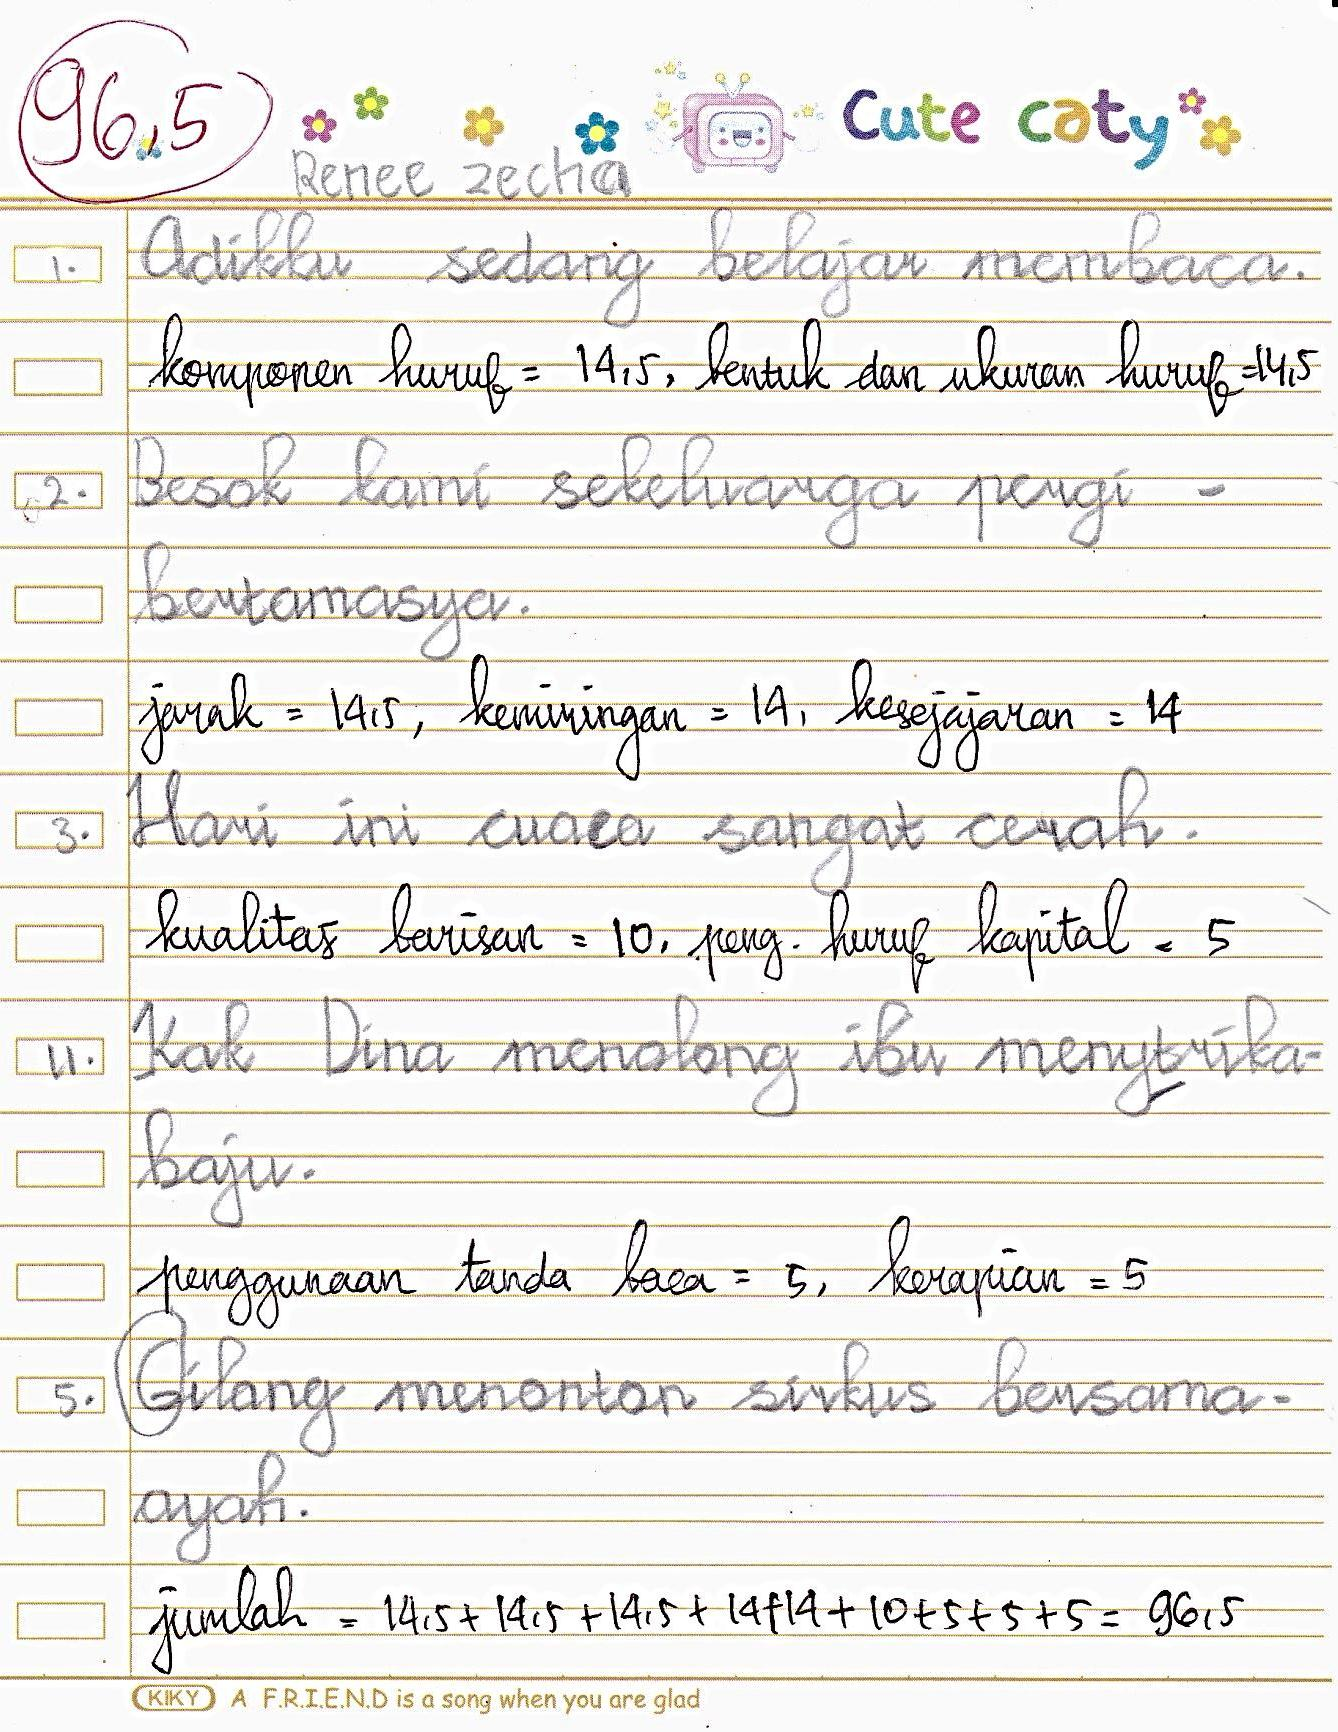 96,5
Cute caty
Renee zecha
1. Adikku sedang belajar membaca.
komponen huruf = 14,5, bentuk dan ukuran huruf = 14,5
2. Besok kami sekeluarga pergi -
bertamasya.
jarak = 14,5, kemiringan = 14, kesejajaran = 14
3. Hari ini cuaca sangat cerah.
kualitas barisan = 10, peng. huruf kapital = 5
4. Kak Dina menolong ibu menytrika-
baju.
penggunaan tanda baca = 5, kerapian = 5
5. Gilang menonton sirkus bersama-
ayah.
jumlah = 14,5 + 14,5 + 14,5 + 14 + 14 + 10 + 5 + 5 + 5 = 96,5
KIKY A F.R.I.E.N.D is a song when you are glad